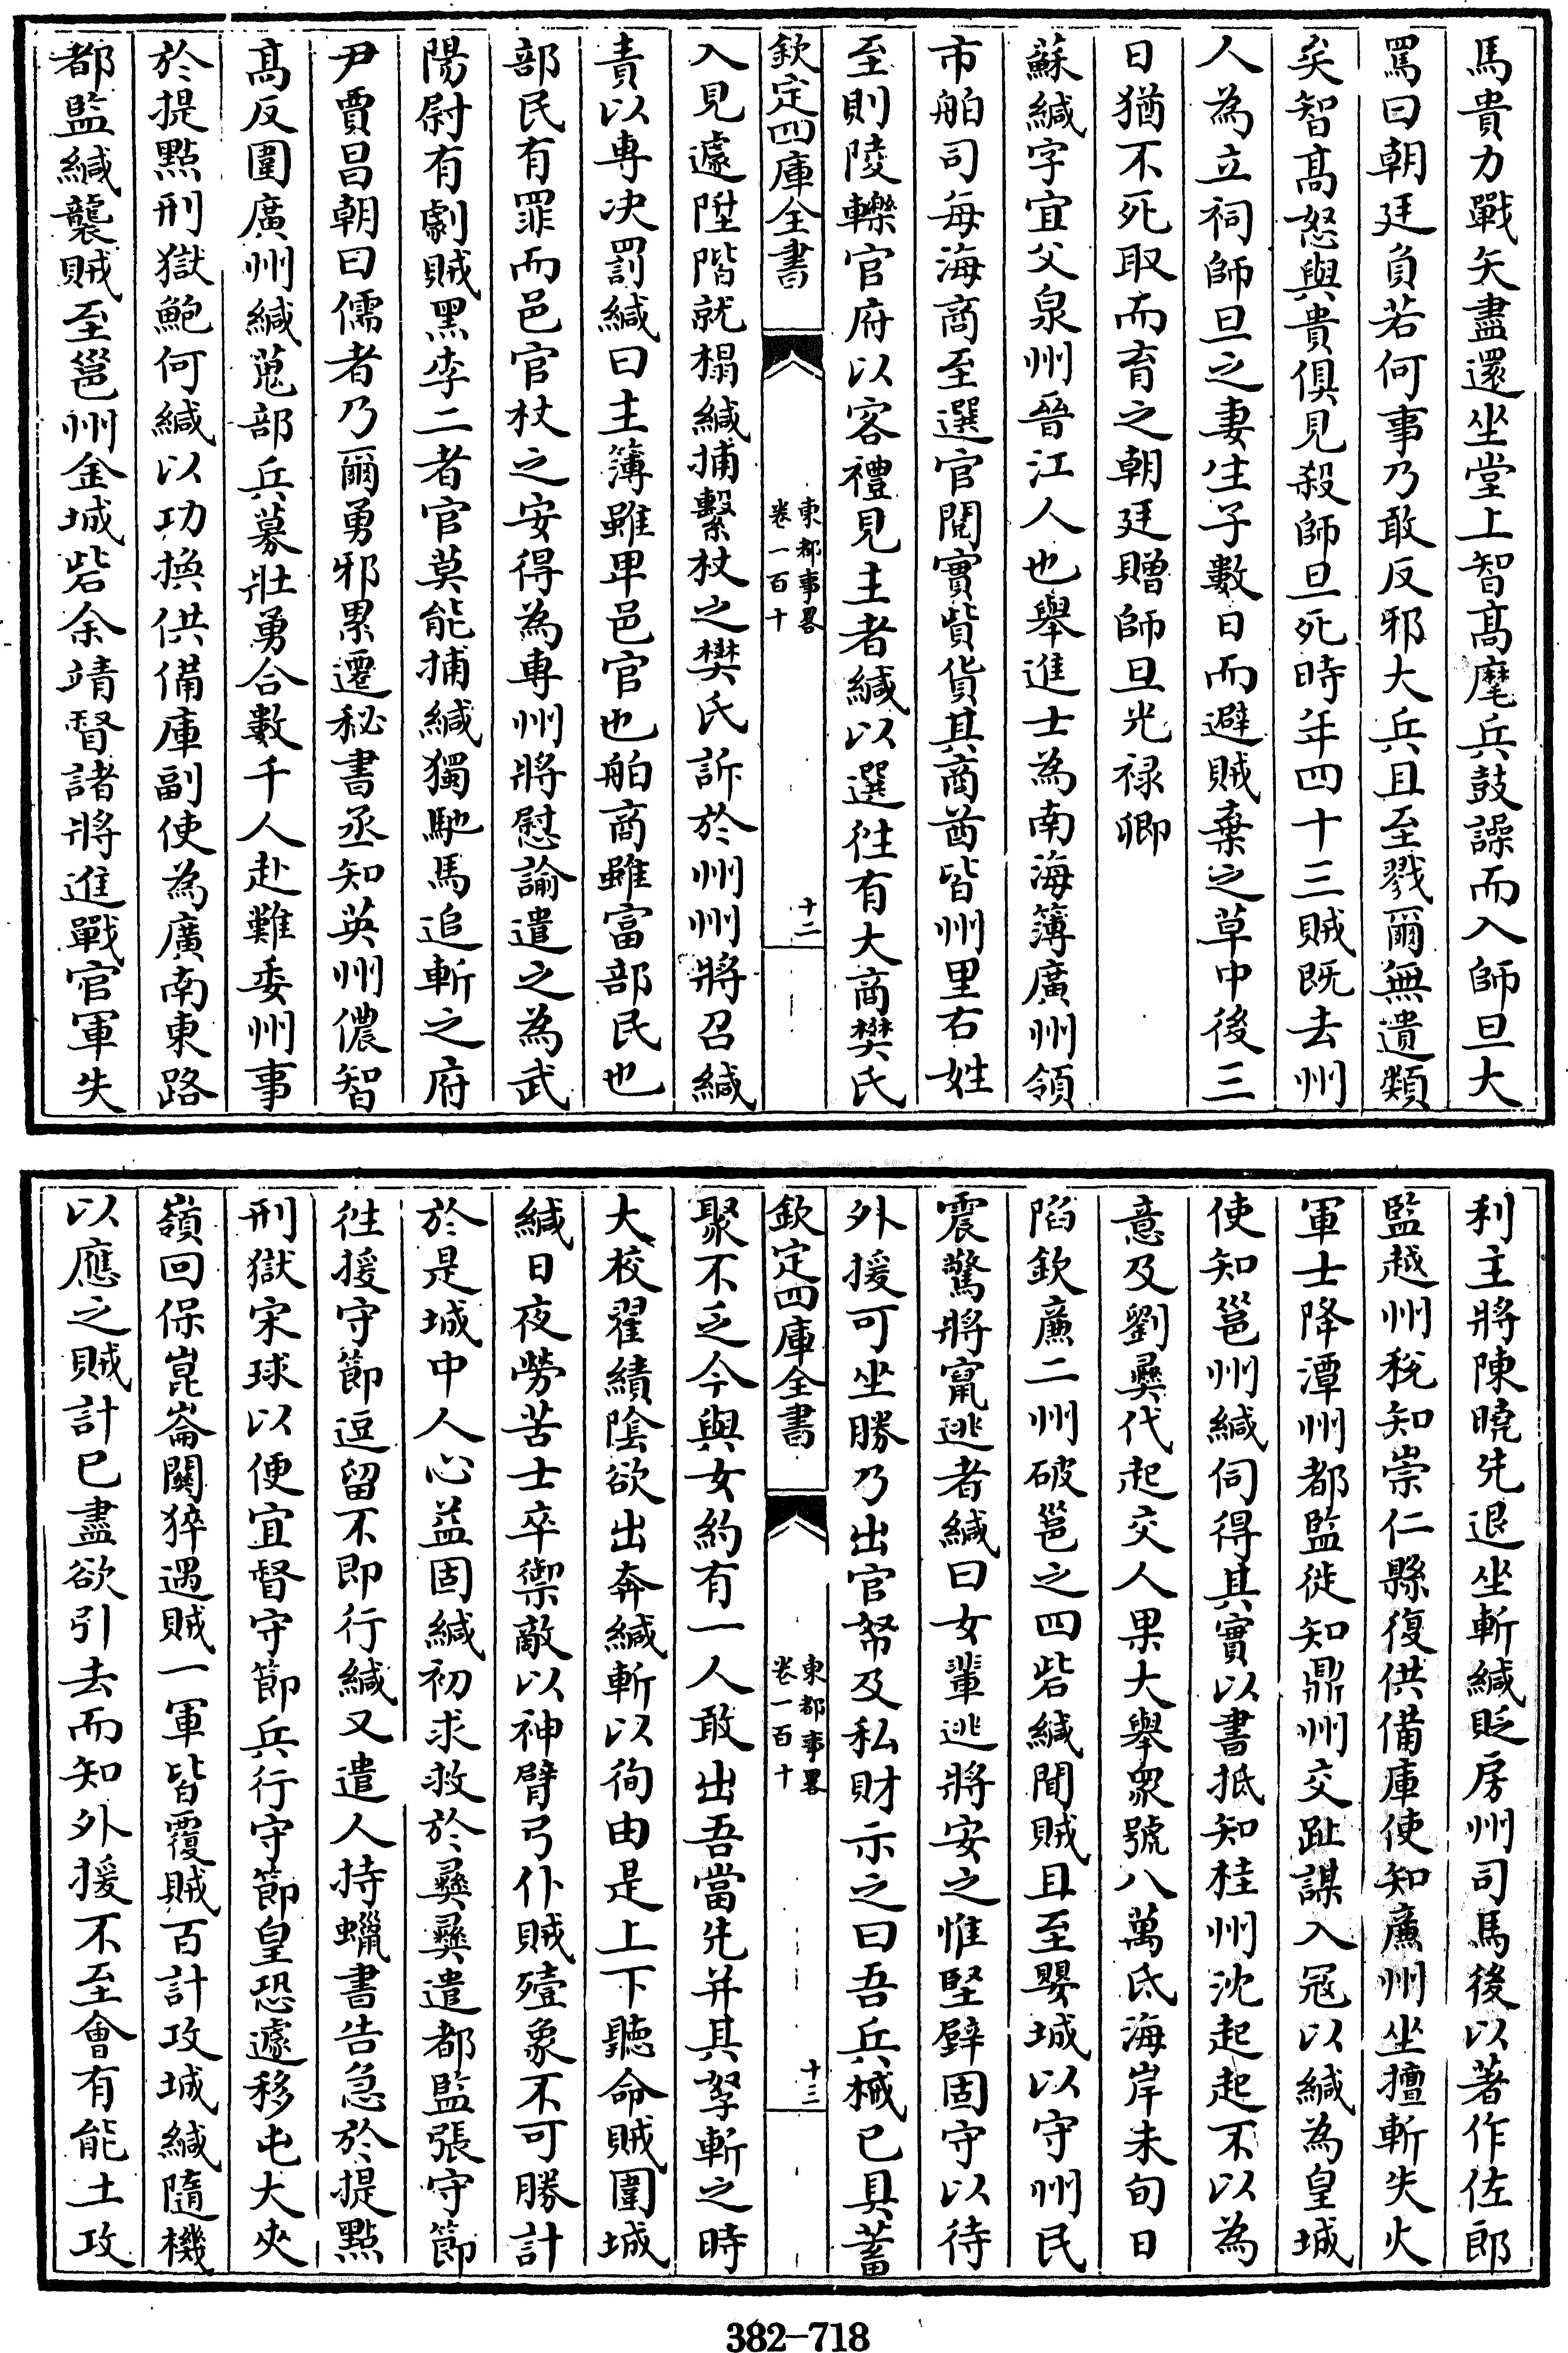 馬貴力戰矢盡還坐堂上智髙麾兵鼓譟而入師旦大
罵曰朝廷負若何事乃敢反邪大兵且至戮爾無遺類
矣智髙怒與貴俱見殺師旦死時年四十三賊既去州
人為立祠師旦之妻生子數日而避賊棄之草中後三
日猶不死取而育之朝廷贈師旦光禄卿
蘇緘字宜父泉州晉江人也舉進士為南海簿廣州領
市舶司每海商至選官閲實貲貨其商酋皆州里右姓
至則陵轢官府以客禮見主者緘以選徃有大商樊氏
欽定四庫全書
東都事畧
卷一百十
十二
入見遽陞階就榻緘捕繫杖之樊氏訴於州州將召緘
責以専决罰緘曰主簿雖卑邑官也舶商雖富部民也
部民有罪而邑官杖之安得為専州將慰諭遣之為武
陽尉有劇賊黑李二者官莫能捕緘獨馳馬追斬之府
尹賈昌朝曰儒者乃爾勇邪累遷秘書丞知英州儂智
髙反圍廣州緘蒐部兵募壯勇合數千人赴難委州事
於提點刑獄鮑何緘以功換供備庫副使為廣南東路
都監緘襲賊至邕州金城砦余靖督諸將進戰官軍失
利主將陳曉先退坐斬緘貶房州司馬後以著作佐郎
監越州税知崇仁縣復供備庫使知廉州坐擅斬失火
軍士降潭州都監徙知鼎州交趾謀入冦以緘為皇城
使知邕州緘伺得其實以書抵知桂州沈起起不以為
意及劉彞代起交人果大舉衆號八萬氐海岸未旬日
陷欽廉二州破邕之四砦緘聞賊且至嬰城以守州民
震驚將甯逃者緘曰女輩逃將安之惟堅壁固守以待
外援可坐勝乃出官帑及私財示之曰吾兵械已具蓄
欽定四庫全書
東都事畧
卷一百十
十三
聚不乏今與女約有一人敢出吾當先并其孥斬之時
大校翟績陰欲出奔緘斬以徇由是上下聽命賊圍城
緘日夜勞苦士卒禦敵以神臂弓仆賊殪象不可勝計
於是城中人心益固緘初求救於彞彞遣都監張守節
徃援守節逗留不即行緘又遣人持蠟書告急於提點
刑獄宋球以便宜督守節兵行守節皇恐遽移屯大夾
嶺回保崑崙關猝遇賊一軍皆覆賊百計攻城緘隨機
以應之賊計已盡欲引去而知外援不至會有能土攻
382-718